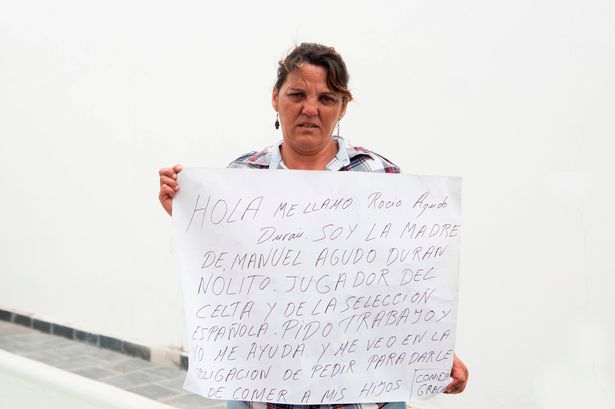 HOLA. ME LLAMO Rocio Agudo
Durán. SOY LA MADRE
DE, MANUEL AGUDO DURAN
NOLITO. JUGADOR DEL
CELTA Y DE LA SELECCIÓN
ESPAÑOLA. PIDO TRABAJO Y
NO ME AYUDA. Y ME VEO EN LA
OBLIGACION DE PEDIR PARA DARLE
DE COMER A MIS HIJOS
COMIDA
GRACIAS